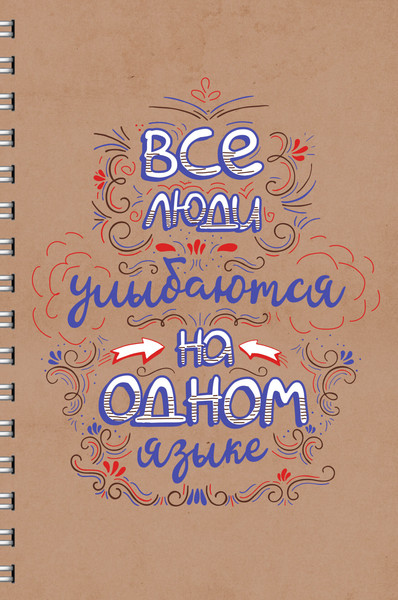 Все
люди
улыбаются
на
одном
языке